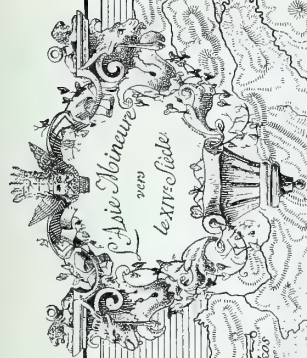 L'Asie Mineure
vers
le XIVe Siècle.